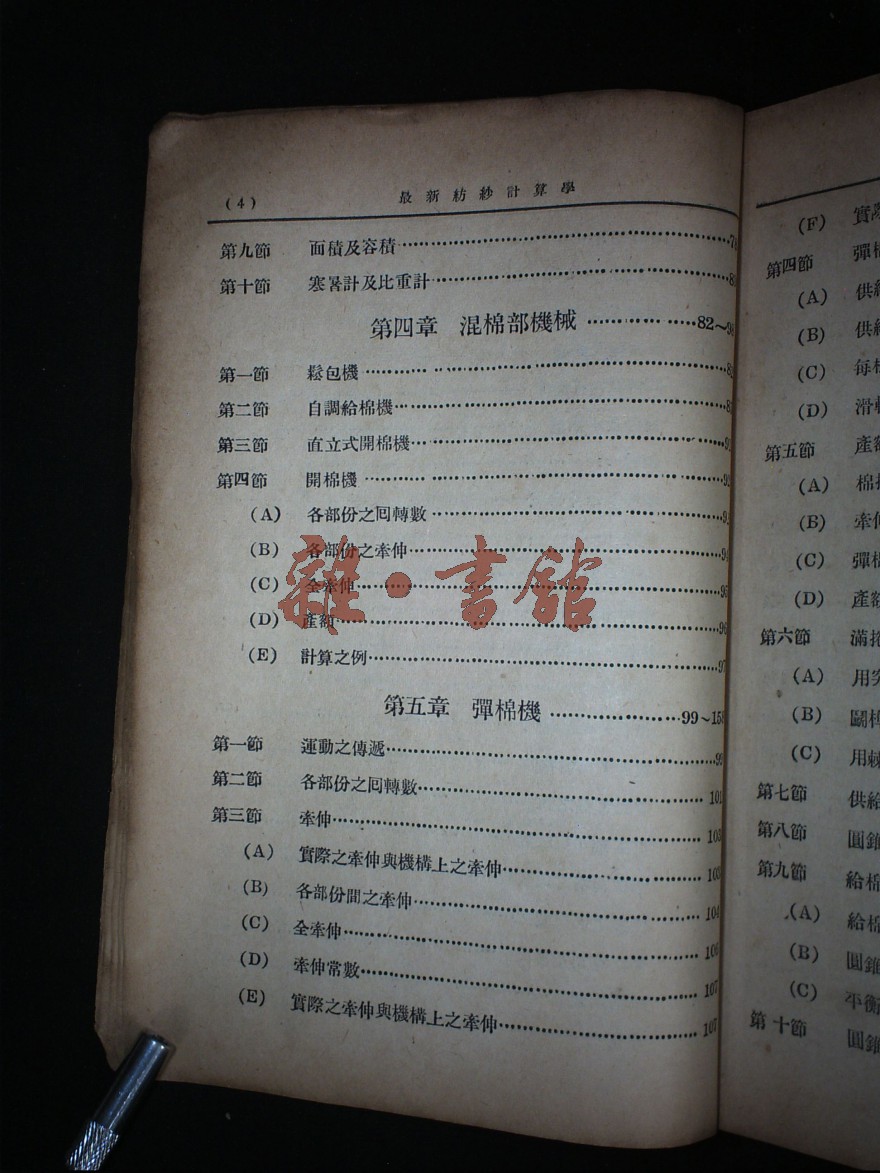 (4) 最新紡紗計算學
第九節 面積及容積
第十節 寒暑計及比重計
第四章 混棉部機械 82～
第一節 鬆包機
第二節 自調給棉機
第三節 直立式開棉機
第四節 開棉機
(A) 各部份之囘轉數
(B) 各部份之牽伸 94
(C) 全牽伸 95
(D) 產額 96
(E) 計算之例 97
第五章 彈棉機 99～158
第一節 運動之傳遞 99
第二節 各部份之囘轉數 101
第三節 牽伸 103
(A) 實際之牽伸與機構上之牽伸 103
(B) 各部份間之牽伸 104
(C) 全牽伸 106
(D) 牽伸常數 107
(E) 實際之牽伸與機構上之牽伸 107
雜·書館
(F) 實際
第四節 彈棉
(A) 供給
(B) 供給
(C) 每
(D) 滑
第五節 產額
(A) 棉
(B) 牽伸
(C) 彈棉
(D) 產額
第六節 滿
(A) 用
(B)
(C) 用棘
第七節 供給
第八節 圓錐
第九節 給棉
(A) 給棉
(B) 圓錐
(C) 平衡
第十節 圓錐